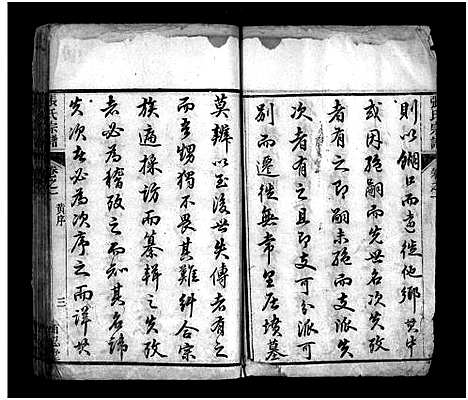 則以餬口而遠徙他鄉其中
或因絕嗣而先世名次失攷
者有之即嗣未絕而支派失
次者有之且即支可分派可
別而遷徙無常里居墳墓
張氏宗譜
卷之一
黃序
三
莫辨以至後世失傳者有之
而玄甥獨不畏其難糾合宗
族遍採訪而纂輯之失攷
者必為稽攷之而知其名諱
失次者必為次序之而詳其
張氏宗譜